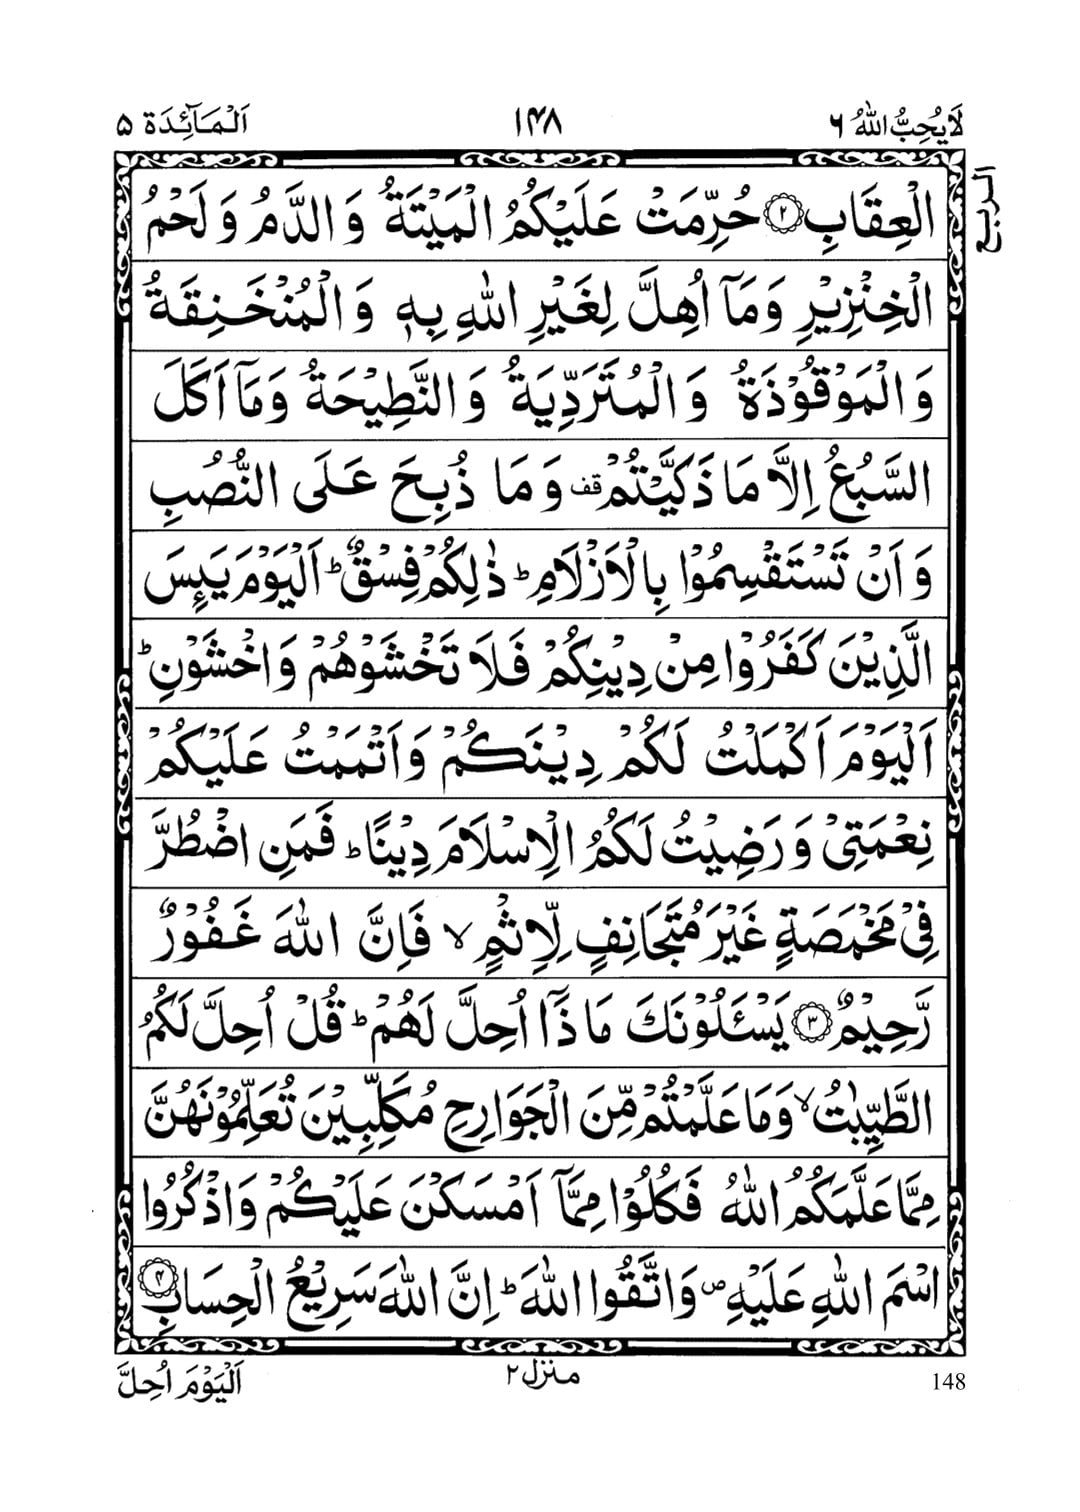 لَا يُحِبُّ اللّٰهُ ٦ ١۴٨ اَلْمَآئِدَة ۵
الربع
الْعِقَابِ ۝٢ حُرِّمَتْ عَلَيْكُمُ الْمَيْتَةُ وَ الدَّمُ وَ لَحْمُ
الْخِنْزِيْرِ وَ مَآ اُهِلَّ لِغَيْرِ اللّٰهِ بِهٖ وَ الْمُنْخَنِقَةُ
وَ الْمَوْقُوْذَةُ وَ الْمُتَرَدِّيَةُ وَ النَّطِيْحَةُ وَ مَآ اَكَلَ
السَّبُعُ اِلَّا مَا ذَكَّيْتُمْ قف وَ مَا ذُبِحَ عَلَى النُّصُبِ
وَ اَنْ تَسْتَقْسِمُوْا بِالْاَزْلَامِ ؕ ذٰلِكُمْ فِسْقٌ ؕ اَلْيَوْمَ يَىِٕسَ
الَّذِيْنَ كَفَرُوْا مِنْ دِيْنِكُمْ فَلَا تَخْشَوْهُمْ وَ اخْشَوْنِ ؕ
اَلْيَوْمَ اَكْمَلْتُ لَكُمْ دِيْنَكُمْ وَ اَتْمَمْتُ عَلَيْكُمْ
نِعْمَتِيْ وَ رَضِيْتُ لَكُمُ الْاِسْلَامَ دِيْنًا ؕ فَمَنِ اضْطُرَّ
فِيْ مَخْمَصَةٍ غَيْرَ مُتَجَانِفٍ لِّاِثْمٍ ۙ فَاِنَّ اللّٰهَ غَفُوْرٌ
رَّحِيْمٌ ۝٣ يَسْـَٔلُوْنَكَ مَا ذَآ اُحِلَّ لَهُمْ ؕ قُلْ اُحِلَّ لَكُمُ
الطَّيِّبٰتُ ۙ وَ مَا عَلَّمْتُمْ مِّنَ الْجَوَارِحِ مُكَلِّبِيْنَ تُعَلِّمُوْنَهُنَّ
مِمَّا عَلَّمَكُمُ اللّٰهُ فَكُلُوْا مِمَّآ اَمْسَكْنَ عَلَيْكُمْ وَ اذْكُرُوا
اسْمَ اللّٰهِ عَلَيْهِ ۪ وَ اتَّقُوا اللّٰهَ ؕ اِنَّ اللّٰهَ سَرِيْعُ الْحِسَابِ ۝۴
148 منزل ٢ اَلْيَوْمَ اُحِلَّ